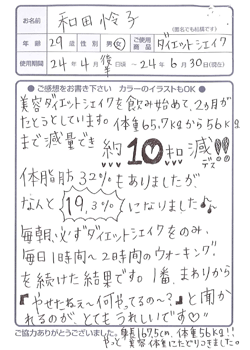 お名前 和田怜子
(匿名でも結構です)
年齢 29歳 性別 男・女 ご使用商品 ダイエットシェイク
使用期間 24年4月後半日頃~24年6月30日(現在)
●ご感想をお書き下さい カラーのイラストもOK●
美容ダイエットシェイクを飲み始めて、2ヶ月が
たとうとしています。体重65.7kgから56kg
まで減量でき 約10キロ減!!デス
体脂肪 32%もありましたが
なんと 19.3% になりました♪
毎朝、必ずダイエットシェイクをのみ、
毎日1時間~2時間のウォーキング。
を続けた結果です。1番、まわりから
『やせたねぇ~何やってるの~?』と聞か
れるのが、とてもうれしいです♡
ご協力ありがとうございました。身長167.5cm、体重56kg!!
やっと美容体重にたどりつきました。